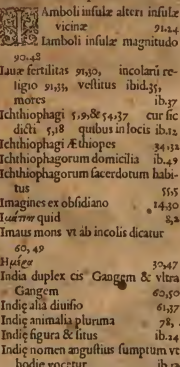 Iamboli insulæ alteri insulæ
vicinæ 91.24
Iamboli insulæ magnitudo
90.48
Iauæ fertilitas 91,30, incolarū re-
ligio 91,33, vestitus ibid.35,
mores ib.37
Ichthiophagi 5,9,&54,37 cur sic
dicti 5,18 quibus in locis ib.12
Ichthiophagi Æthiopes 34,32
Ichthiophagorum domicilia ib.49
Ichthiophagorum sacerdotum habi-
tus 55,5
Imagines ex obsidiano 14,30
quid 8,2
Imaus mons vt ab incolis dicatur
60,49
Ἡμέρα 30,47
India duplex cis Gangem & vltra
Gangem 60,50
Indiæ alia diuisio 61,37
Indiæ animalia pluruma 78,
Indiæ figura & situs ib.14
Indiæ nomen angustius sumptum vt
hodie vocetur